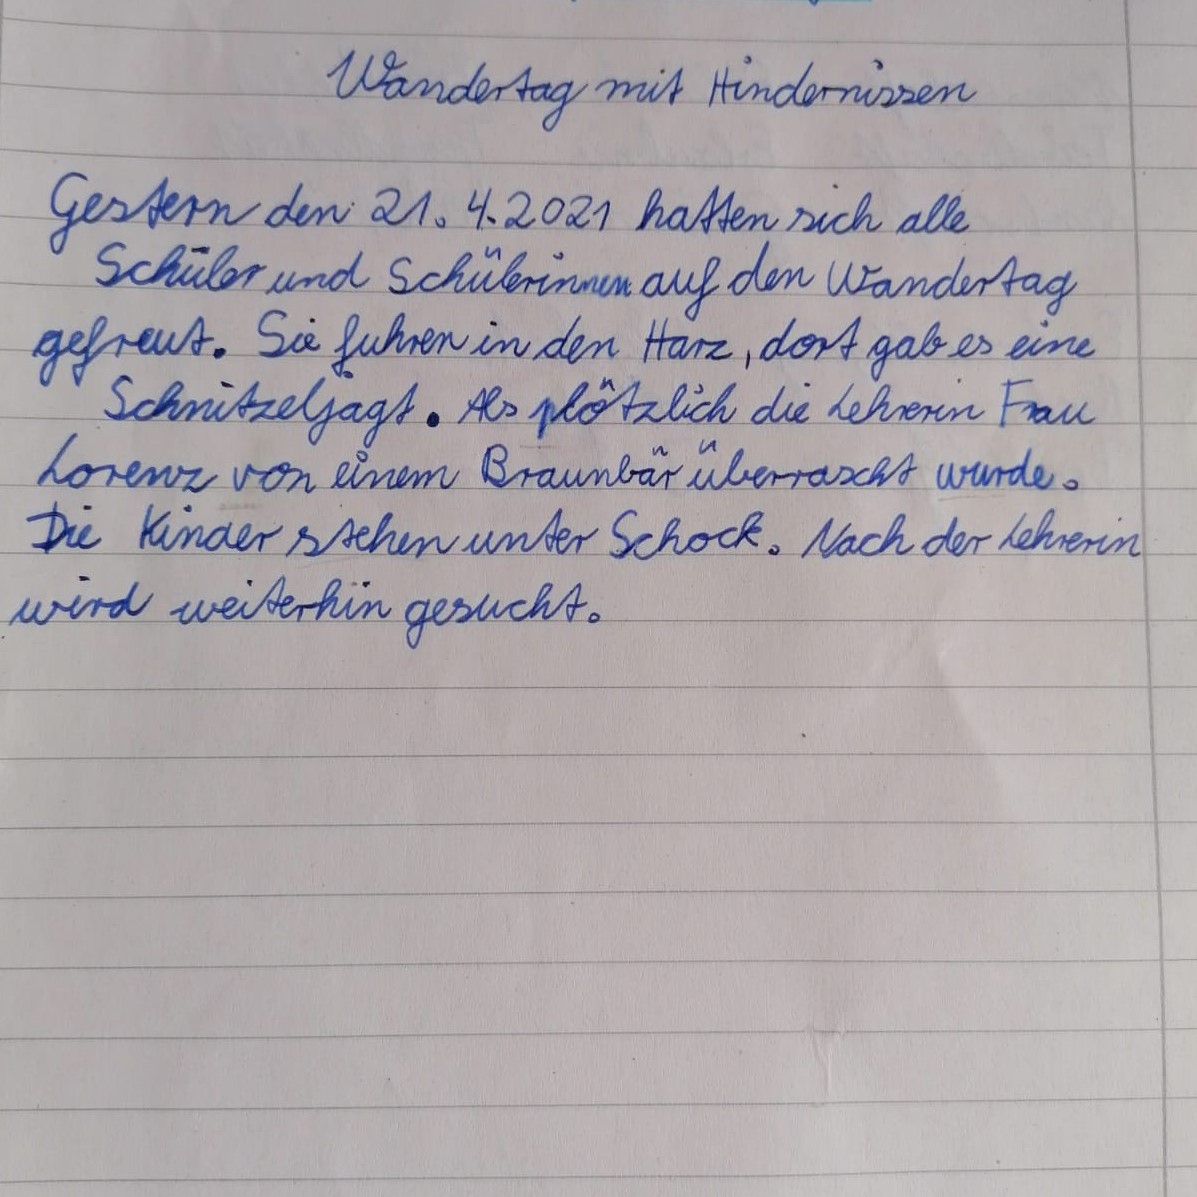 Wandertag mit Hindernissen
Gestern den 21. 4. 2021 hatten sich alle
Schüler und Schülerinnen auf den Wandertag
gefreut. Sie fuhren in den Harz, dort gab es eine
Schnitzeljagt. Als plötzlich die Lehrerin Frau
Lorenz von einem Braunbär überrascht wurde.
Die Kinder stehen unter Schock. Nach der Lehrerin
wird weiterhin gesucht.